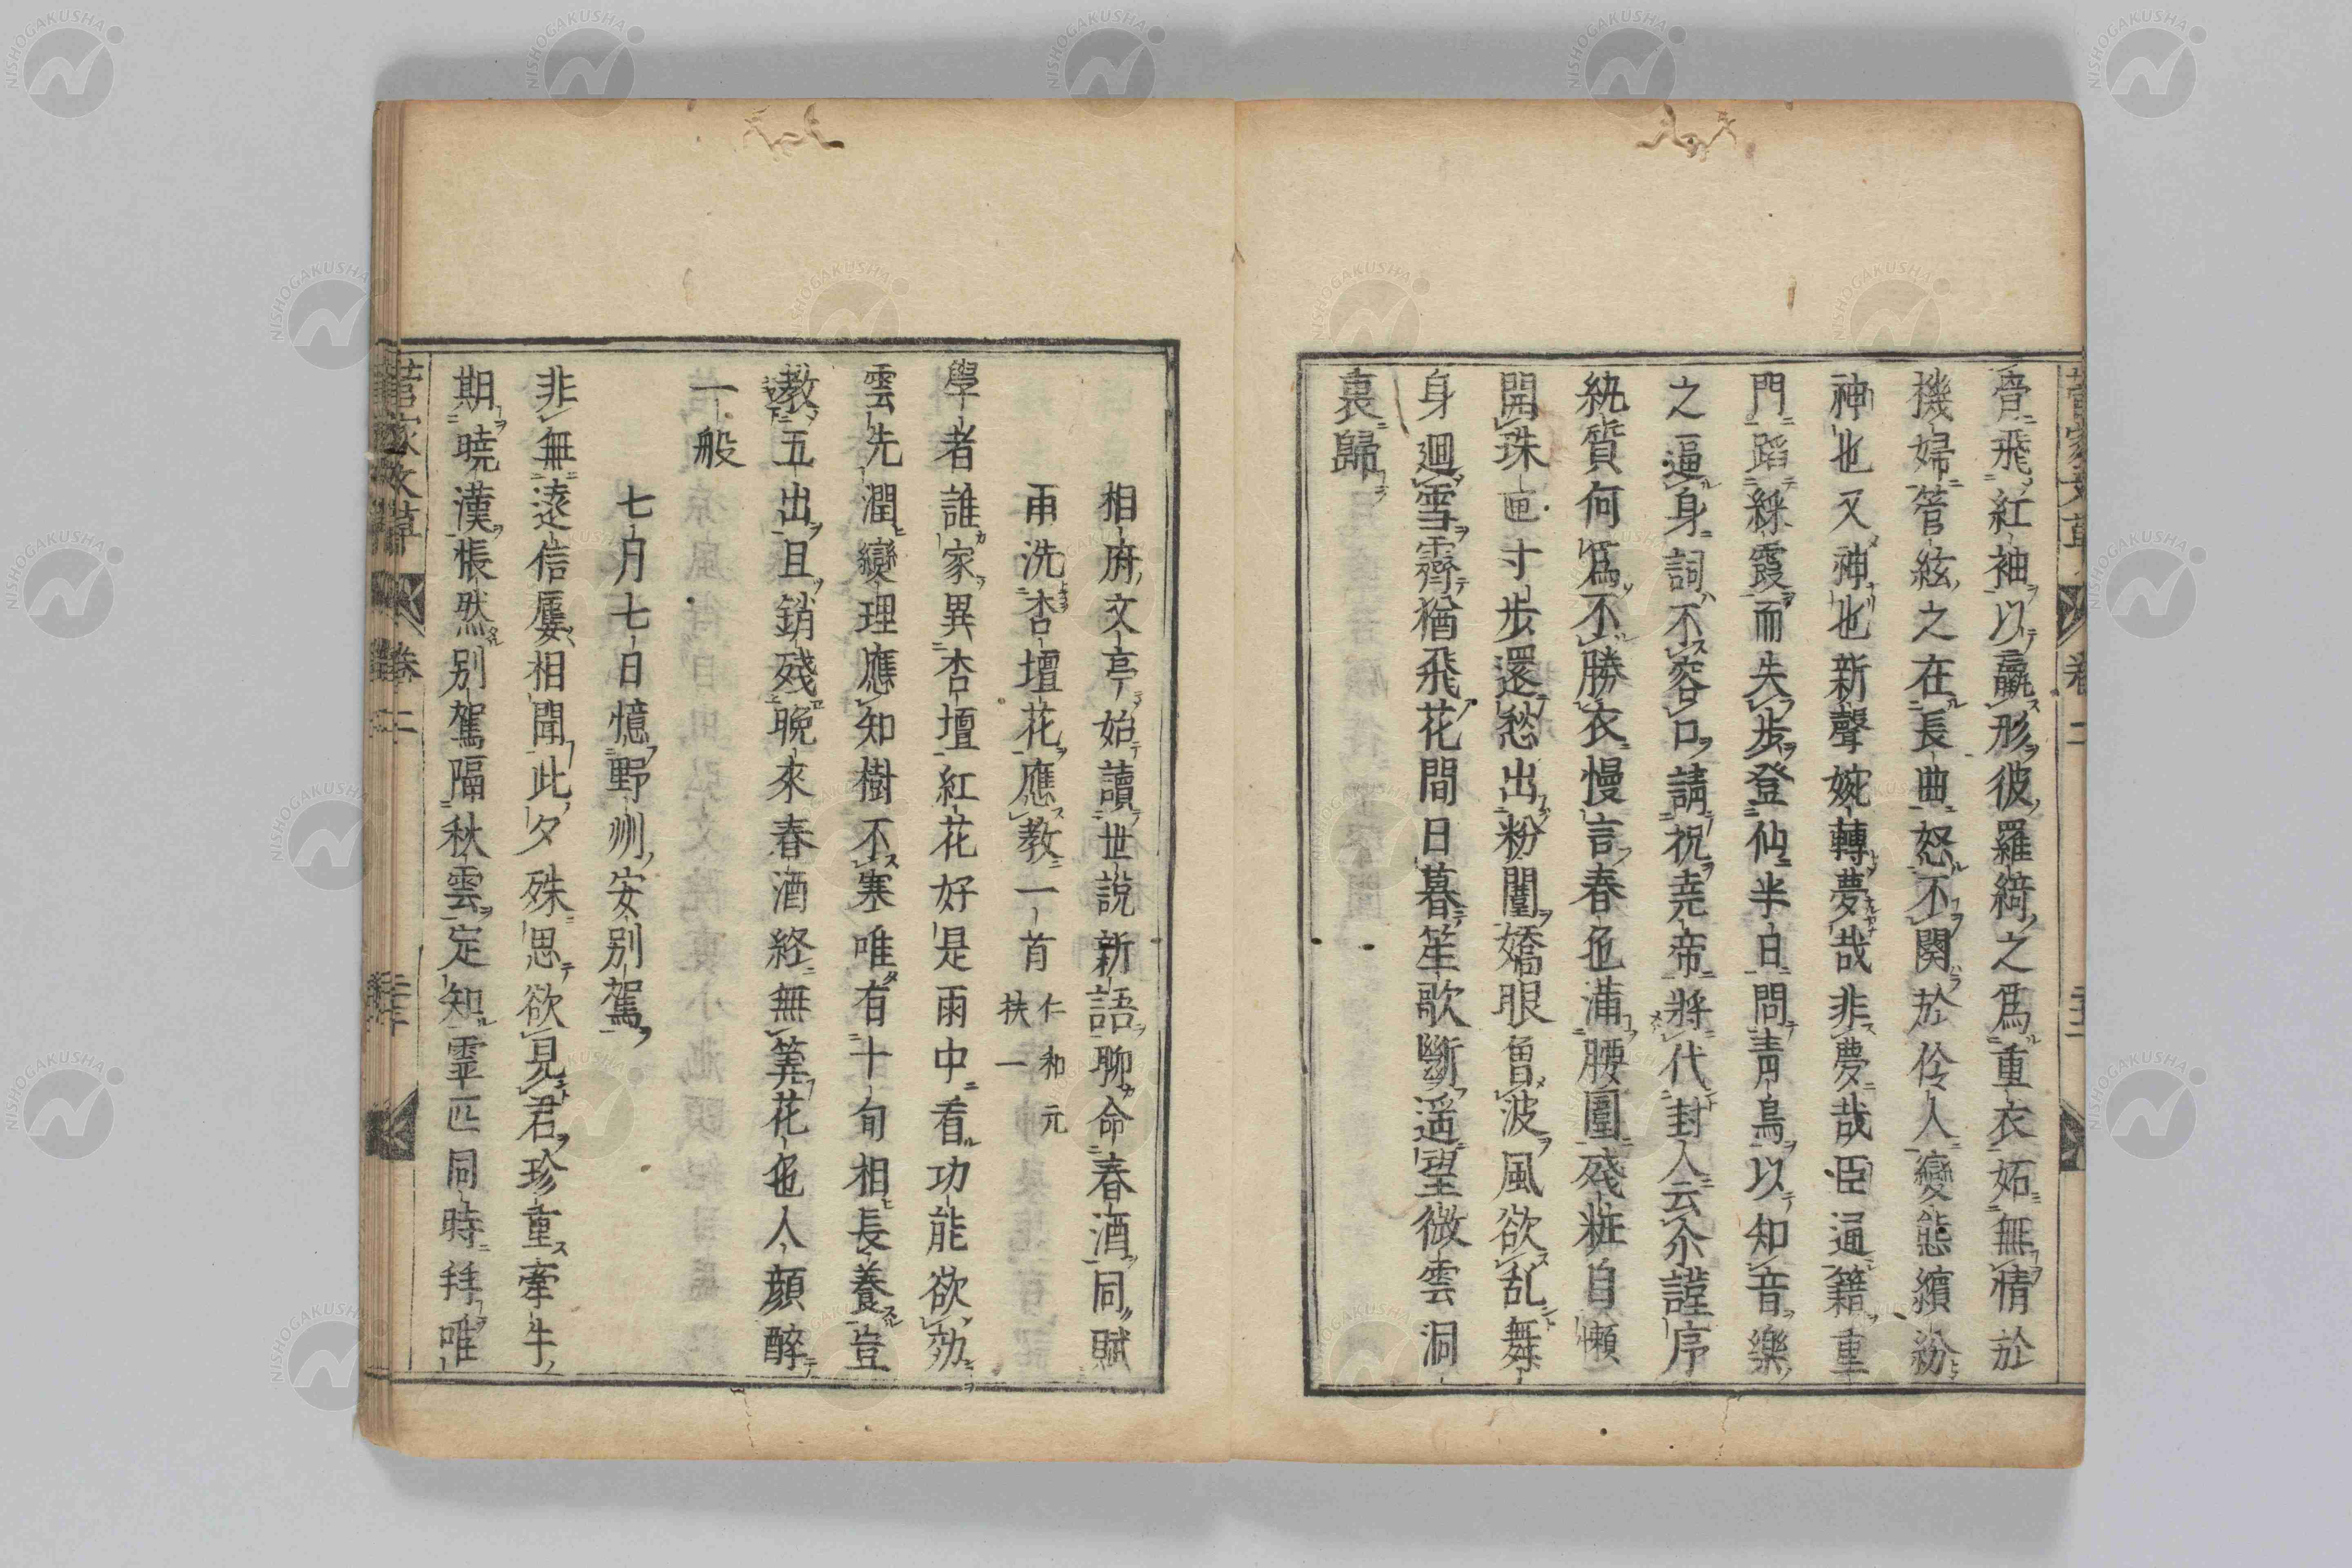 脅飛紅袖以羸形彼羅綺之爲重衣妬無情於
機婦管絃之在長曲怒不関於伶人變態繽紛
神也又神也新聲婉轉夢哉非夢哉臣逼籍重
門蹈綵霞而失步登仙半日問靑鳥以知音樂
之逼身詞不容口請祝堯帝將代封人云尒謹序
紈質何爲不勝衣慢言春色滿腰圍殘粧自懶
開珠匣寸步還愁出粉闈嬌眼曾波風欲乱舞
身廻雪霽猶飛花間日暮笙歌斷遥望微雲洞
裏歸
相府文亭始讀世說新語聊命春酒同賦
雨洗杏壇花應敎一首 仁和元
扶一
學者誰家異杏壇紅花好是雨中看功能欲効
雲先潤變理應知樹不寒唯有十旬相長養豈
敎五出且銷殘晚來春酒終無筭花色人顔醉
一般
七月七日憶野州安別駕
非無遠信屢相聞此夕殊思欲見君珍重牽牛
期曉漢悵然別駕隔秋雲定知靈匹同時拜唯
菅家文草 卷二